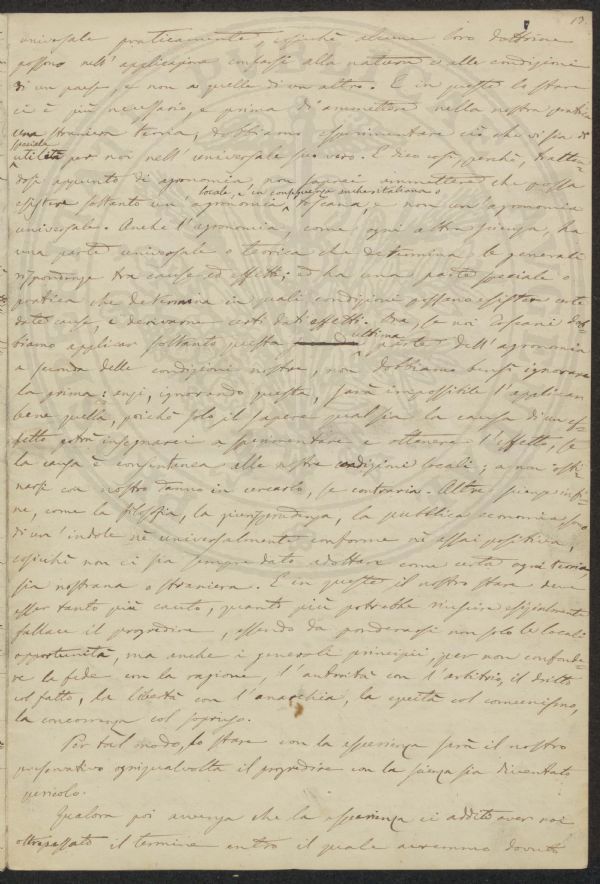 19.
universale praticamente, cosichè alcune loro dottrine
possono nell'applicazione confarsi alla natura ed alle condizioni
di un paese, e non a quelle di un altro. E in questo lo stare
ci è più necessario, e prima di ammettere nella nostra pratica
una straniera teoria, dobbiamo esperimentare ciò che vi sia di
speciale
utilità per noi nell'universale suo vero. E dico così, perchè, trattan-
dosi appunto di agronomia, non saprei ammettere che possa
locale, e in conseguenza anche italiana o
esistere soltanto un'agronomia toscana, e non un'agronomia
universale. Anche l'agronomia, come ogni altra scienza, ha
una parte universale o teorica che determina le generali
rispondenze tra cause ed effetti; ed ha una parte speciale o
pratica che determina in quali condizioni possono esistere certe
date cause, e derivarne certi dati effetti. Ora, se noi Toscani dob-
ultima
biamo applicar soltanto questa parte dell'agronomia
a seconda delle condizioni nostre, non dobbiamo bensì ignorare
la prima: anzi, ignorando questa, sarà impossibile l'applicar
bene quella, poichè solo il sapere qual sia la causa di un ef-
fetto potrà insegnarci a sperimentare e ottenere l'effetto, se
la causa è consentanea alle nostre condizioni locali; a non osti-
narsi con nostro danno in cercarlo, se contraria. Altre scienze infi-
ne, come la filosofia, la giurisprudenza, la pubblica economia sono
di un'indole nè universalmente conforme nè assai positiva,
cosichè non ci sia sempre dato adottare come certa ogni teoria,
sia nostrana o straniera. E in queste il nostro stare deve
esser tanto più cauto, quanto più potrebbe riuscire essenzialmente
fallace il progredire, essendo da ponderarsi non solo le locali
opportunità, ma anche i generali principii, per non confonde-
re la fede con la ragione, l'autorità con l'arbitrio, il diritto
col fatto, la libertà con l'anarchia, la equità col comunismo,
la concorrenza col sopruso.
Per tal modo, lo stare con la esperienza sarà il nostro
preservativo ogniqualvolta il progredire con la scienza sia diventato
pericolo.
Qualora poi avvenga che la esperienza ci additi aver noi
oltrepassato il termine entro il quale avremmo dovuto